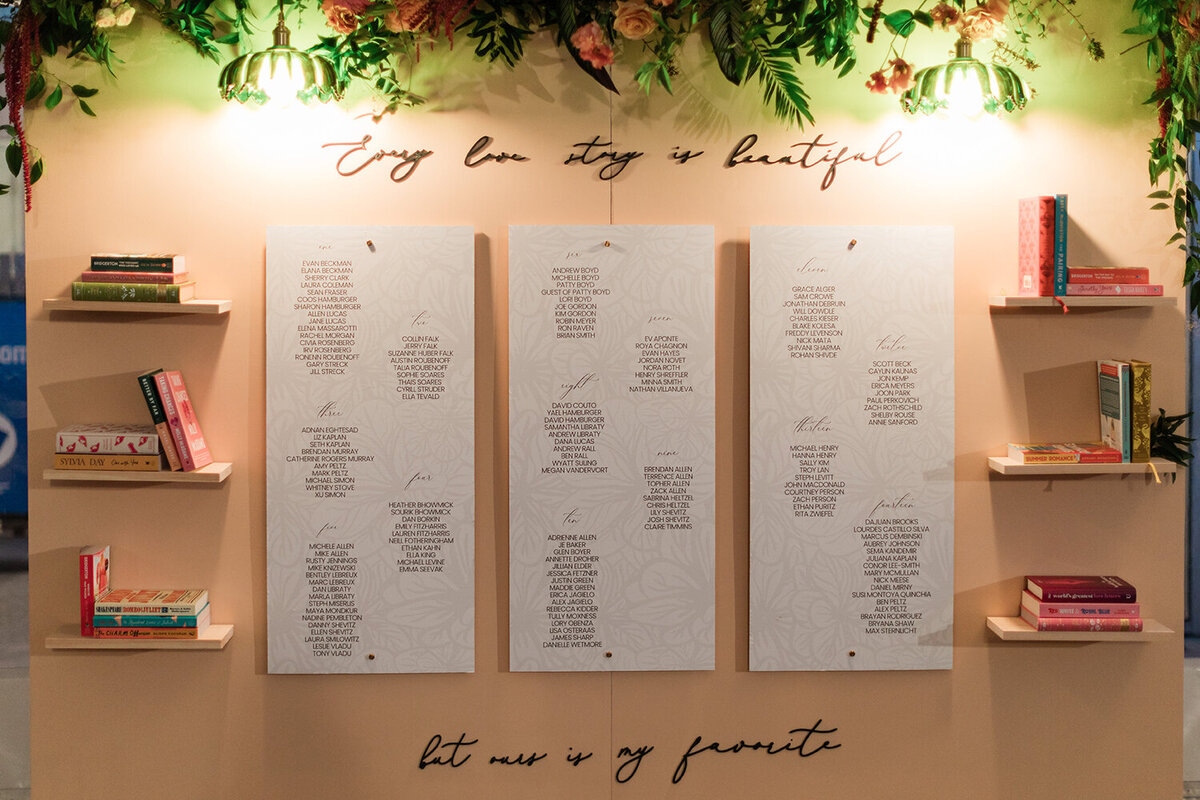 Every love story is beautiful
one
EVAN BECKMAN
ELANA BECKMAN
SHERRY CLARK
LAURA COLEMAN
SEAN FRASER
COOS HAMBURGER
SHARON HAMBURGER
ALLEN LUCAS
JANE LUCAS
ELENA MASSAROTTI
RACHEL MORGAN
CIVIA ROSENBERG
IRV ROSENBERG
RONENN ROUBENOFF
GARY STRECK
JILL STRECK
two
COLLIN FALK
JERRY FALK
SUZANNE HUBER FALK
AUSTIN ROUBENOFF
TALIA ROUBENOFF
SOPHIE SOARES
THAIS SOARES
CYRILL STRUDER
ELLA TEVALD
three
ADNAN EGHTESAD
LIZ KAPLAN
SETH KAPLAN
BRENDAN MURRAY
CATHERINE ROGERS MURRAY
AMY PELTZ
MARK PELTZ
MICHAEL SIMON
WHITNEY STOVE
XU SIMON
four
HEATHER BHOWMICK
SOURIK BHOWMICK
DAN BORKIN
EMILY FITZHARRIS
LAUREN FITZHARRIS
NEILL FOTHERINGHAM
ETHAN KAHN
ELLA KING
MICHAEL LEVINE
EMMA SEEVAK
five
MICHELE ALLEN
MIKE ALLEN
RUSTY JENNINGS
MIKE KNIZEWSKI
BENTLEY LEBREUX
MARC LEBREUX
DAN LIBRATY
MARLA LIBRATY
STEPH MISERLIS
MAYA MONDKUR
NADINE PEMBLETON
DANNY SHEVITZ
ELLEN SHEVITZ
LAURA SMILOWITZ
LESLIE VLADU
TONY VLADU
six
ANDREW BOYD
MICHELLE BOYD
PATTY BOYD
GUEST OF PATTY BOYD
LORI BOYD
JOE GORDON
KIM GORDON
ROBIN MEYER
RON RAVEN
BRIAN SMITH
seven
EV APONTE
ROYA CHAGNON
EVAN HAYES
JORDAN NOVET
NORA ROTH
HENRY SHREFFLER
MINNA SMITH
NATHAN VILLANUEVA
eight
DAVID COUTO
YAEL HAMBURGER
DAVID HAMBURGER
SAMANTHA LIBRATY
ANDREW LIBRATY
DANA LUCAS
ANDREW RALL
BEN RALL
WYATT SULING
MEGAN VANDERVORT
nine
BRENDAN ALLEN
TERRENCE ALLEN
TOPHER ALLEN
ZACK ALLEN
SABRINA HELTZEL
CHRIS HELTZEL
LILY SHEVITZ
JOSH SHEVITZ
CLAIRE TIMMINS
ten
ADRIENNE ALLEN
JE BAKER
GLEN BOYER
ANNETTE DROHER
JILLIAN ELDER
JESSICA FETZNER
JUSTIN GREEN
MADDIE GREEN
ERICA JAGIELO
ALEX JAGIELO
REBECCA KIDDER
TULLY MOXNESS
LORY OBENZA
LISA OSTERAAS
JAMES SHARP
DANIELLE WETMORE
eleven
GRACE ALGER
SAM CROWE
JONATHAN DEBRUIN
WILL DOWDLE
CHARLES KIESER
BLAKE KOLESA
FREDDY LEVENSON
NICK MATA
SHIVANI SHARMA
ROHAN SHIVDE
twelve
SCOTT BECK
CAYLIN KAUNAS
JON KEMP
ERICA MEYERS
JOON PARK
PAUL PERKOVICH
ZACH ROTHSCHILD
SHELBY ROUSE
ANNIE SANFORD
thirteen
MICHAEL HENRY
HANNA HENRY
SALLY KIM
TROY LAN
STEPH LEVITT
JOHN MACDONALD
COURTNEY PERSON
ZACH PERSON
ETHAN PURITZ
RITA ZWIEFEL
fourteen
DAJUAN BROOKS
LOURDES CASTILLO SILVA
MARCUS DEMBINSKI
AUBREY JOHNSON
SEMA KANDEMIR
JULIANA KAPLAN
CONOR LEE-SMITH
MARY MCMULLAN
NICK MEESE
DANIEL MIRNY
SUSI MONTOYA QUINCHIA
BEN PELTZ
ALEX PELTZ
BRAYAN RODRIGUEZ
BRYANA SHAW
MAX STERNLICHT
but ours is my favorite
BRIDGERTON
BETTER BY FAR
SYLVIA DAY
BRIDGERTON
SHAKESPEARE ROMEO & JULIET
THE CHARM OFFENSIVE
THE PAIRING
BRIDGERTON
SUMMER ROMANCE
world's greatest love letters
RED, WHITE & ROYAL BLUE